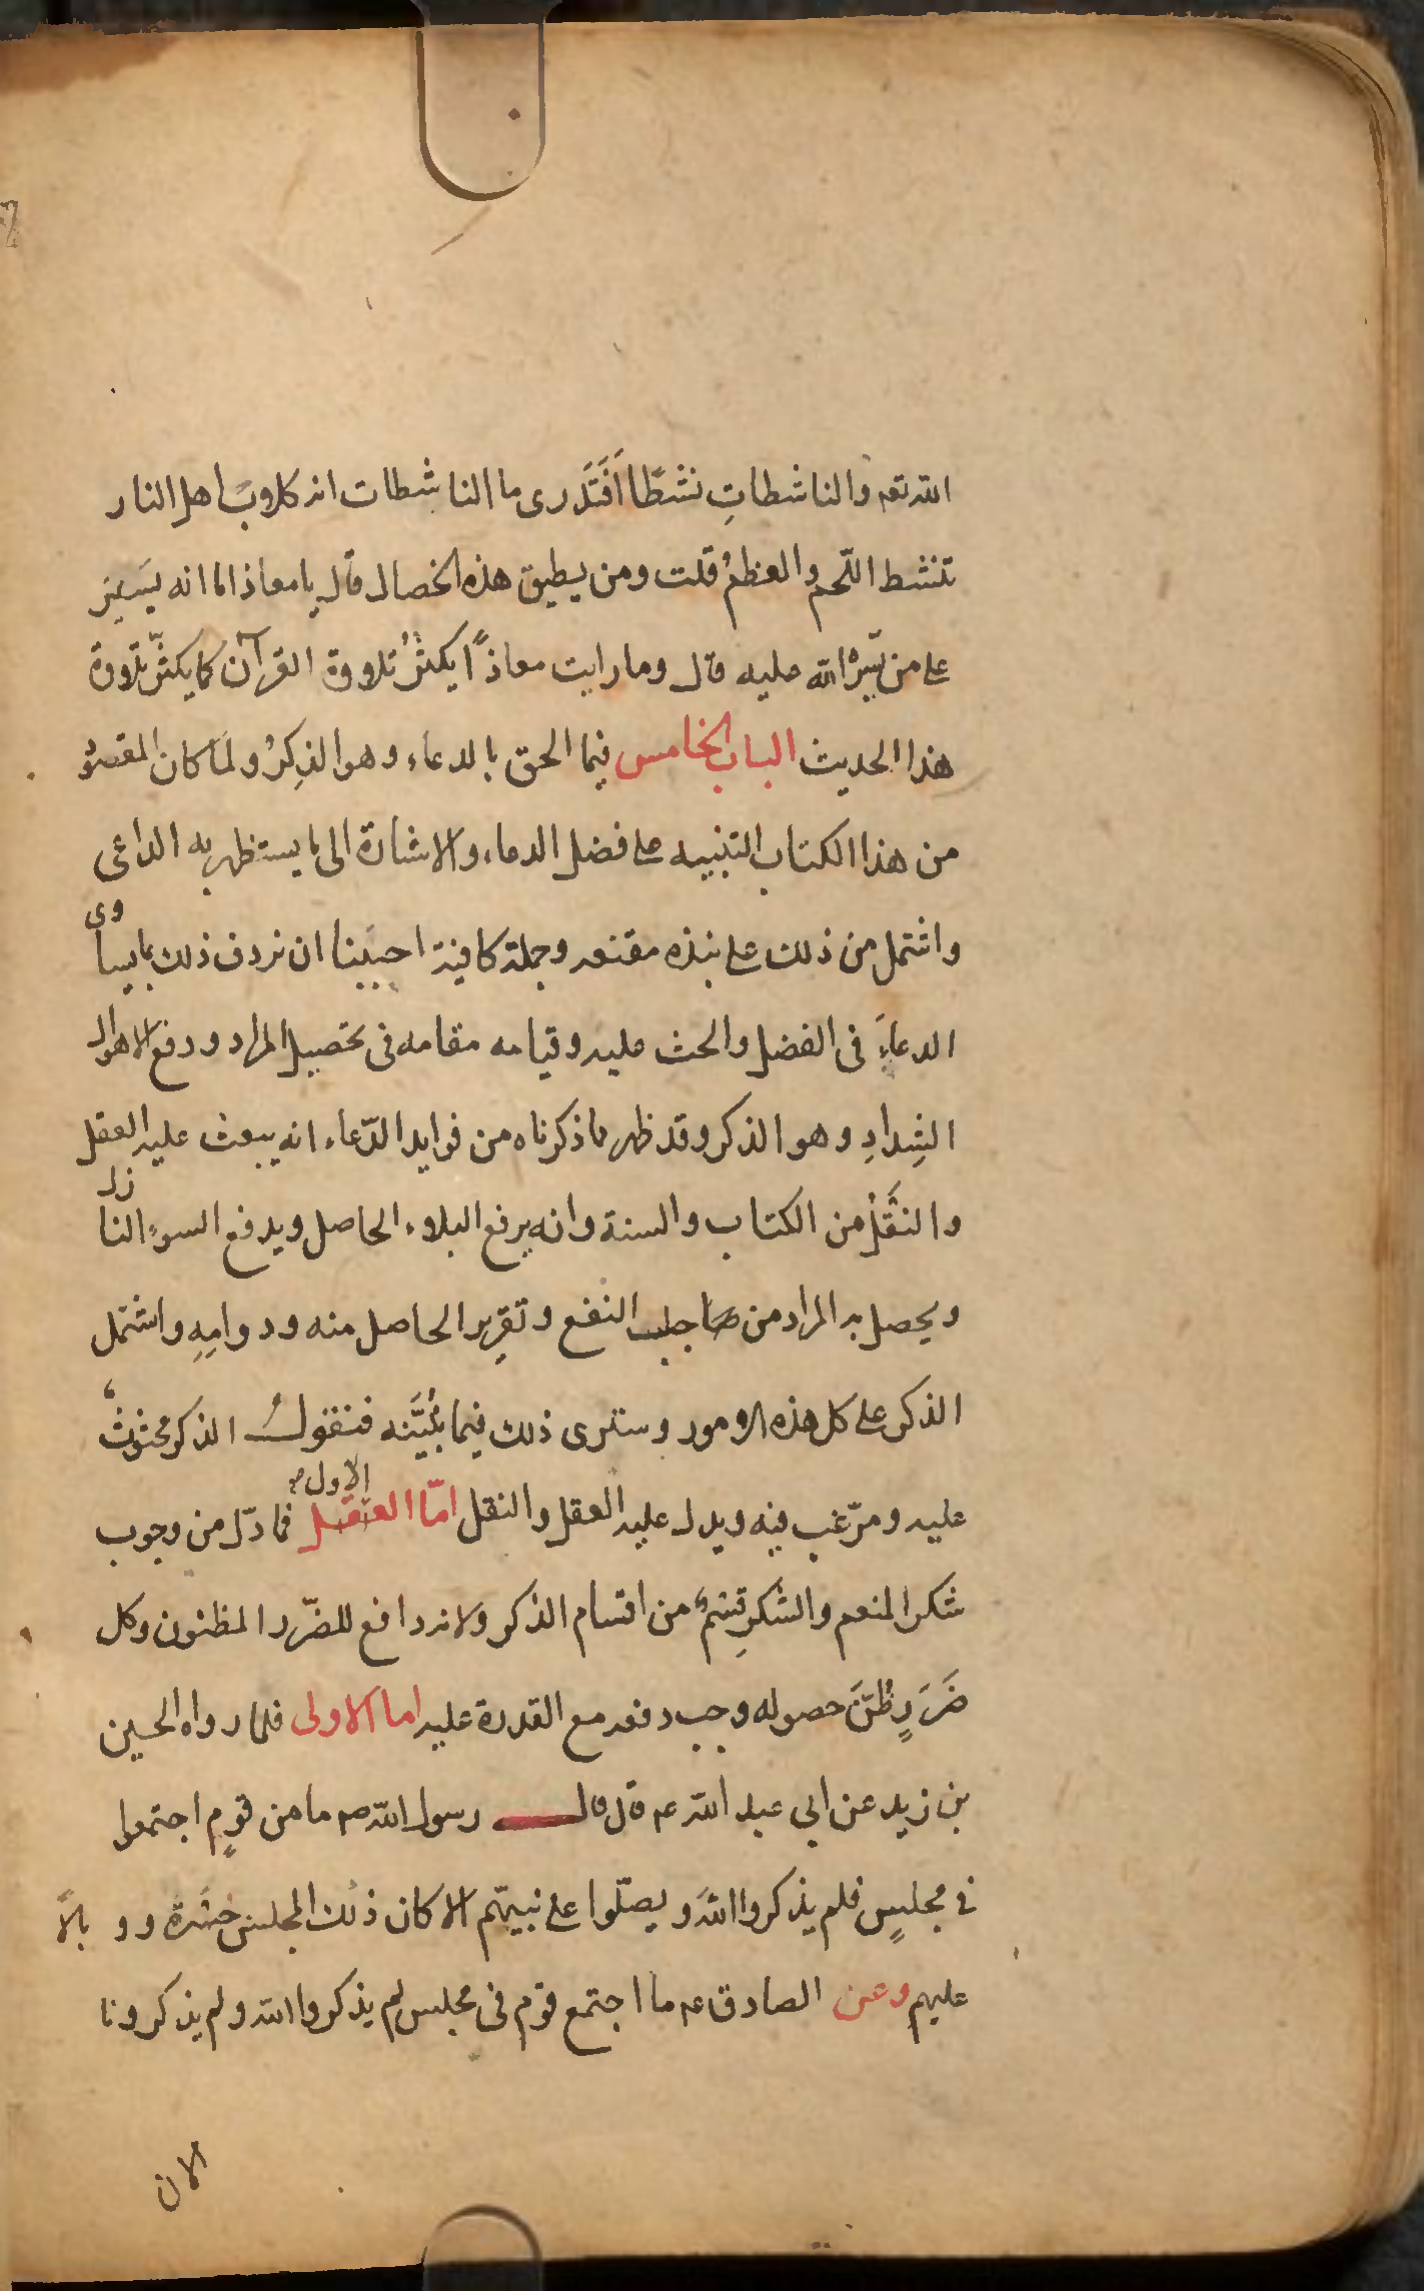 الله تعم والناشطاتِ نشطًا اَفَتَدرى ما الناشطات انه كلاوب اهل النار
تنشط اللّحم والعظمُ قلت ومن يطيق هذه الخصال قال يا معاذ اما انه يسَير
على من يسّره الله عليه قال وما رايت معاذًا يكثرُ تلاوة القرآن كما يكثّر تلاوة
هذا الحديث الباب الخامس فيما الحق بالدعاء وهو الذِكرُ ولمّا كان المقصود
من هذا الكتاب التنبيه على فضل الدعاء والاشارة الى ما يستظهر به الداعى
واشتمل من ذلك على نبذه مقنعه وجملة كافية احببنا ان نردف ذلك بما يساوى
الدعاءَ فى الفضل والحث عليه وقيامه مقامه فى تحصيل المراد ودفع الاهوال
الشِدادِ وهو الذكر وقد ظهر مما ذكرناه من فوايد الدّعاء انه يبعث عليه العقل
والنَّقلُ من الكتاب والسنة وانه يرفع البلاء الحاصل ويدفع السوء النازل
ويحصل به المراد من جلب النفع وتقرِير الحاصل منه ودوامِهِ واشتمل
الذكر على كل هذه الامور وسترى ذلك فيما نُبيَّنه فنقولُ الذكر محثوثٌ
عليه ومرّغب فيه ويدل عليه العقل والنقل امّا العقل الاول فما دلّ من وجوب
شكر المنعم والشكرِ قسمٌ من اقسام الذكر ولانه دافع للضّرر المظنون وكل
ضَرَرٍ ظُنَّ حصوله وجب دفعه مع القدرة عليه اما الاولى فلما رواه الحسين
بن زيد عن ابى عبد الله عم قال قال رسول الله صم ما من قومٍ اجتمعوا
فى مجلسٍ فلم يذكروا اللهَ ويصلّوا على نبيهّم الا كان ذلك المجلس حَسْرَة ووبالاً
عليهم وعن الصادق عم ما اجتمع قوم فى مجلس لم يذكروا الله ولم يذكرونا
الان